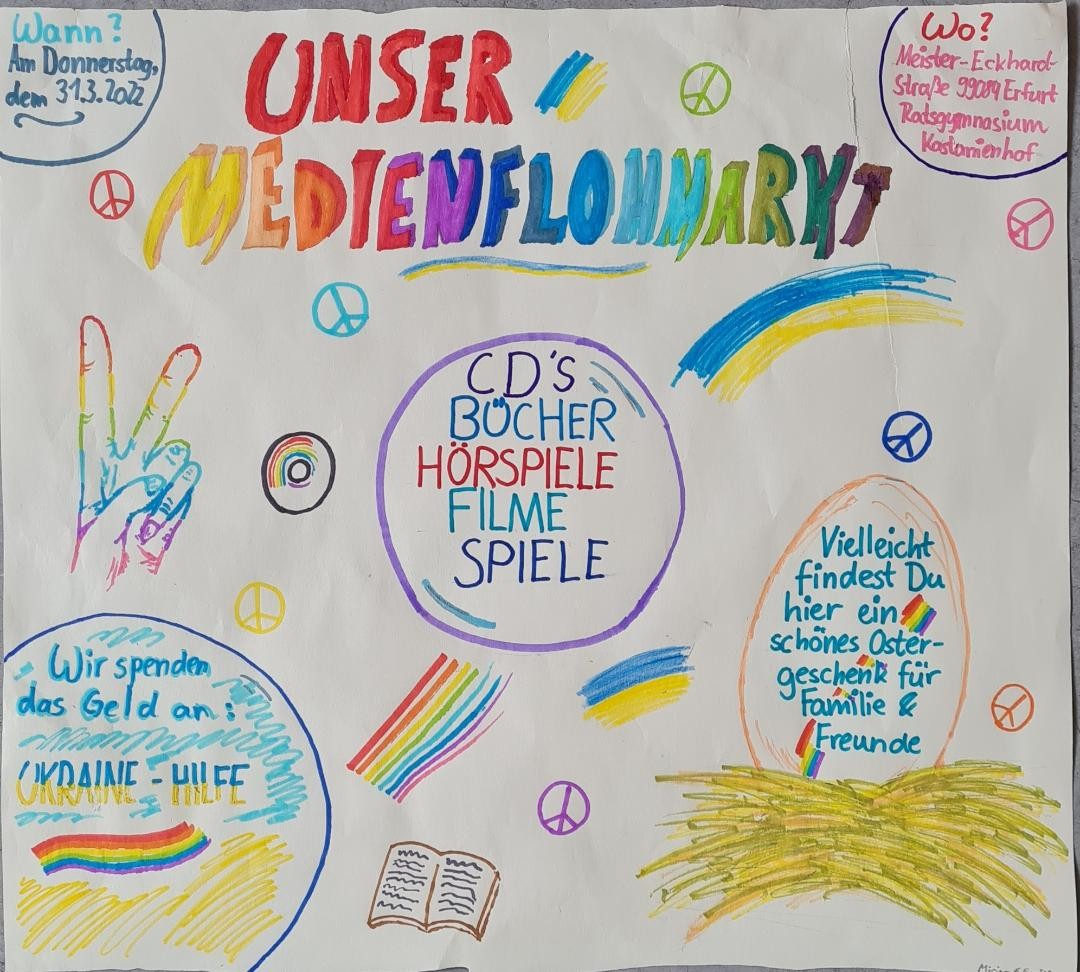 Wann?
Am Donnerstag,
dem 31.3.2022
Wo?
Meister-Eckhard-
Straße 99084 Erfurt
Ratsgymnasium
Kastanienhof
UNSER
MEDIENFLOHMARKT
CD'S
BÜCHER
HÖRSPIELE
FILME
SPIELE
Vielleicht
findest Du
hier ein
schönes Oster-
geschenk für
Familie &
Freunde
Wir spenden
das Geld an:
UKRAINE - HILFE